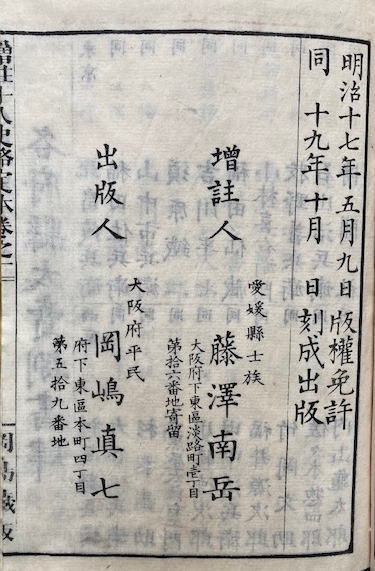 明治十七年五月九日版權免許
同　十九年十月　日刻成出版
增註人
愛媛縣士族
藤澤南岳
大阪府下東區淡路町壱丁目
第拾六番地寄留
出版人
大阪府平民
岡嶋真七
府下東區本町四丁目
第五拾九番地
增註十八史略定本卷之一
岡島藏版